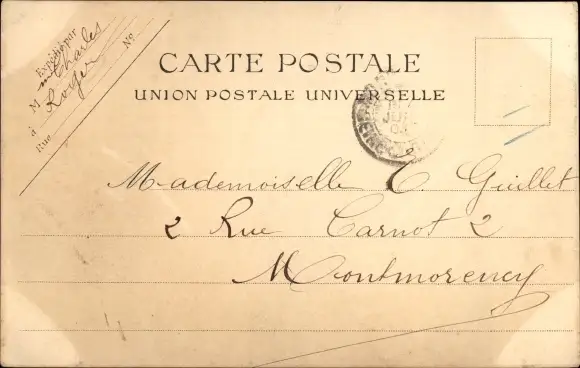 Expédié par
M Charles
à Roger
Rue
No.
CARTE POSTALE
UNION POSTALE UNIVERSELLE
JUIL
Mademoiselle C. Guillet
2 Rue Carnot 2
Montmorency